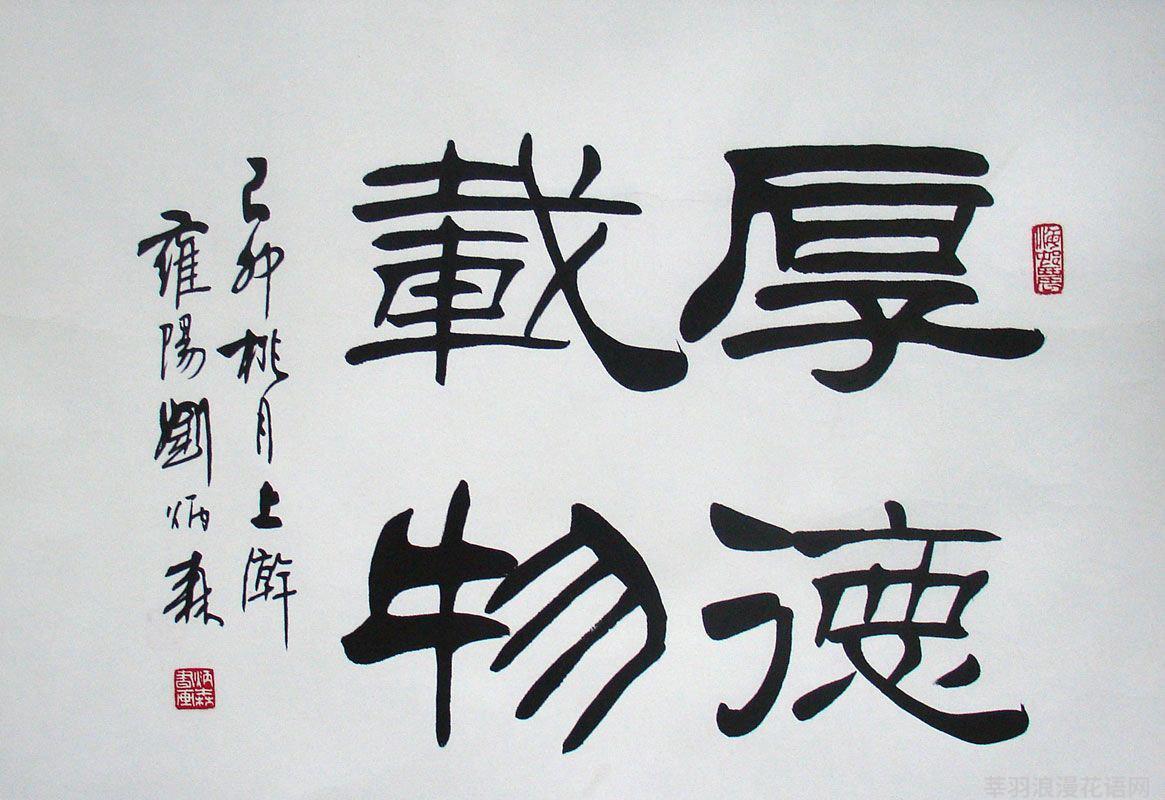 厚德
載物
己卯桃月上澣
雍陽劉炳森
炳森書画
莘羽浪漫花语网